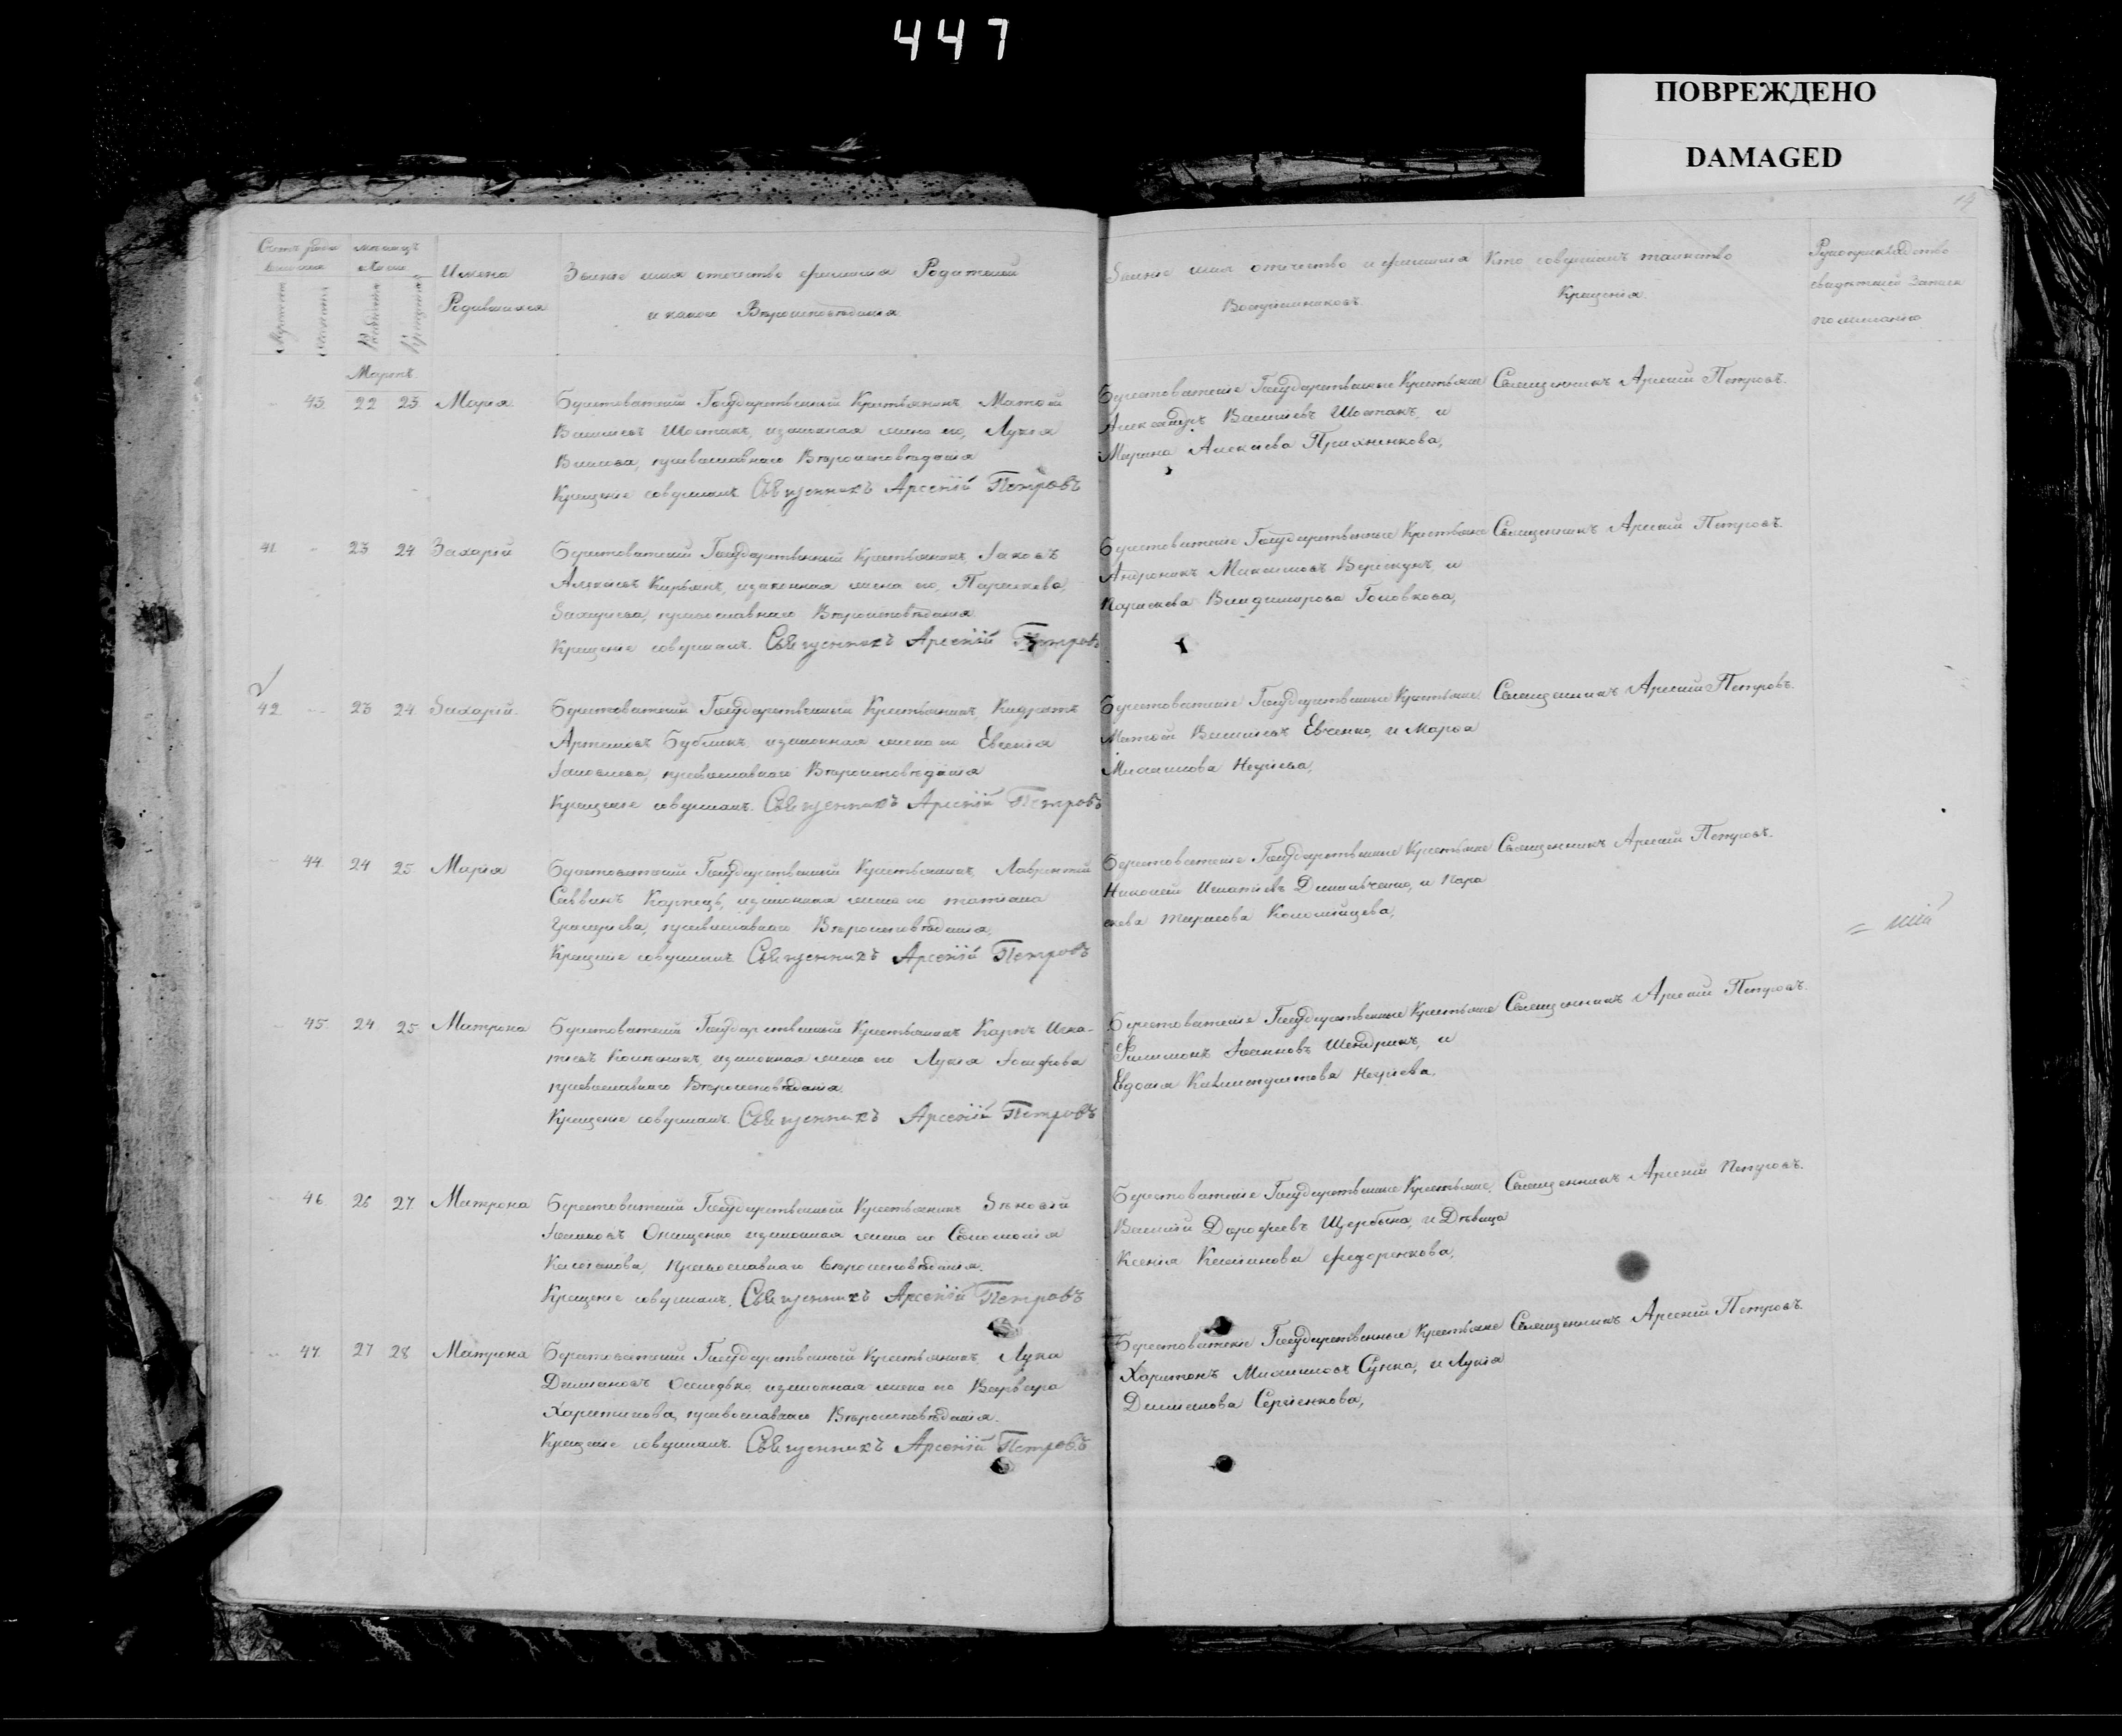 447
ПОВРЕЖДЕНО
DAMAGED
Имена
Родившихся
Званіе имя отечество фамилія Родителей
и какого Вѣроисповѣданія
Званіе имя отечество и фамилія
Воспріемниковъ.
Кто совершалъ таинство
Крещенія.
Рукоприкладство
свидѣтелей Записи
по желанію
Мартъ.
43. 22 23. Марія
Берестоватскій Государственный Крестьянинъ, Матѳей
Васильевъ Шостакъ, изаконная жена его, Лукія
православнаго Вѣроисповѣданія
Крещеніе совершалъ. Священникъ Арсеній Петровъ
Берестоватскіе Государственные Крестьяне
Александръ Васильевъ Шостакъ, и
Марина Алексіева
Священникъ Арсеній Петровъ.
41. 23 24 Захарій
Берестоватскій Государственный Крестьянинъ, Іаковъ
Алексіевъ Кирьянъ, изаконная жена его, Параскева,
Захаріева, православнаго Вѣроисповѣданія
Крещеніе совершалъ. Священникъ Арсеній Петровъ
Берестоватскіе Государственные Крестьяне
Андроникъ Максимовъ Верескунъ, и
Параскева Владимірова Головкова,
Священникъ Арсеній Петровъ.
42. 23 24. Захарій.
Берестоватскій Государственный Крестьянинъ, Кидратъ
Артемовъ Бубликъ, изаконная жена его Евгенія
Іаковлева, православнаго Вѣроисповѣданія
Крещеніе совершалъ. Священникъ Арсеній Петровъ
Берестоватскіе Государственные Крестьяне
Матѳей Васильевъ Евченко, и Марѳа
Священникъ Арсеній Петровъ.
44. 24 25. Марія
Берестоватскій Государственный Крестьянинъ, Лаврентій
Саввинъ Карпецъ, изаконная жена его татіана
Григоріева, православнаго Вѣроисповѣданія,
Крещеніе совершалъ. Священникъ Арсеній Петровъ
Берестоватскіе Государственные Крестьяне
Николай Игнатіевъ Даншвченко, и Пара
скева Тарасова Коломійцева,
Священникъ Арсеній Петровъ.
45. 24. 25 Матрона
Берестоватскій Государственный Крестьянинъ Карпъ Игна-
тіевъ изаконная жена его Лукія Іосифова
православнаго Вѣроисповѣданія.
Крещеніе совершалъ. Священникъ Арсеній Петровъ
Берестоватскіе Государственные Крестьяне
Филимонъ Іоанновъ Шендрикъ, и
Евдокія
Священникъ Арсеній Петровъ.
46. 26 27. Матрона
Берестоватскій Государственный Крестьянинъ Зѣновій
Іоанновъ Онищенко изаконная жена его Соломонія
православнаго вѣроисповѣданія.
Крещеніе совершалъ. Священникъ Арсеній Петровъ
Берестоватскіе Государственные Крестьяне,
Василій Дорофеевъ Щербина, и Дѣвица
Ксенія Федоренкова,
Священникъ Арсеній Петровъ.
47. 27 28 Матрона
Берестоватскій Государственный Крестьянинъ, Лука
Даміановъ изаконная жена его Варвара
Харитонова, православнаго Вѣроисповѣданія.
Крещеніе совершалъ. Священникъ Арсеній Петровъ
Берестоватскіе Государственные Крестьяне
Харитонъ и Лукія
Даміанова Сергіенкова,
Священникъ Арсеній Петровъ.